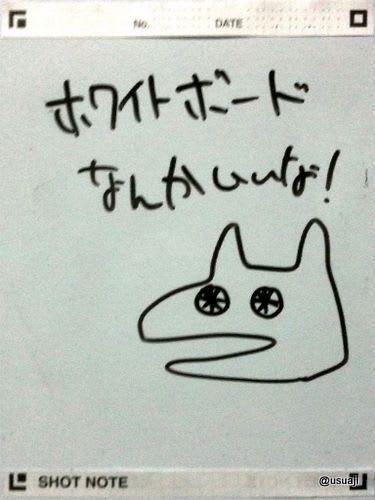 No. DATE
ホワイトボード
なんかいいな!
SHOT NOTE
@usuaji